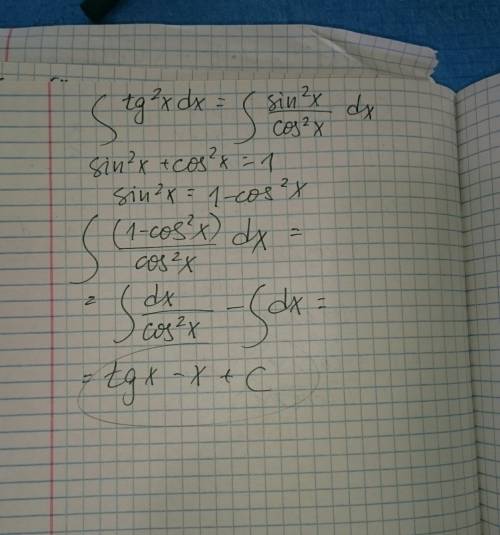 ∫ tg²x dx = ∫ sin²x/cos²x dx
sin²x + cos²x = 1
sin²x = 1-cos²x
∫ (1-cos²x)/cos²x dx =
= ∫ dx/cos²x - ∫ dx =
= tgx - x + C